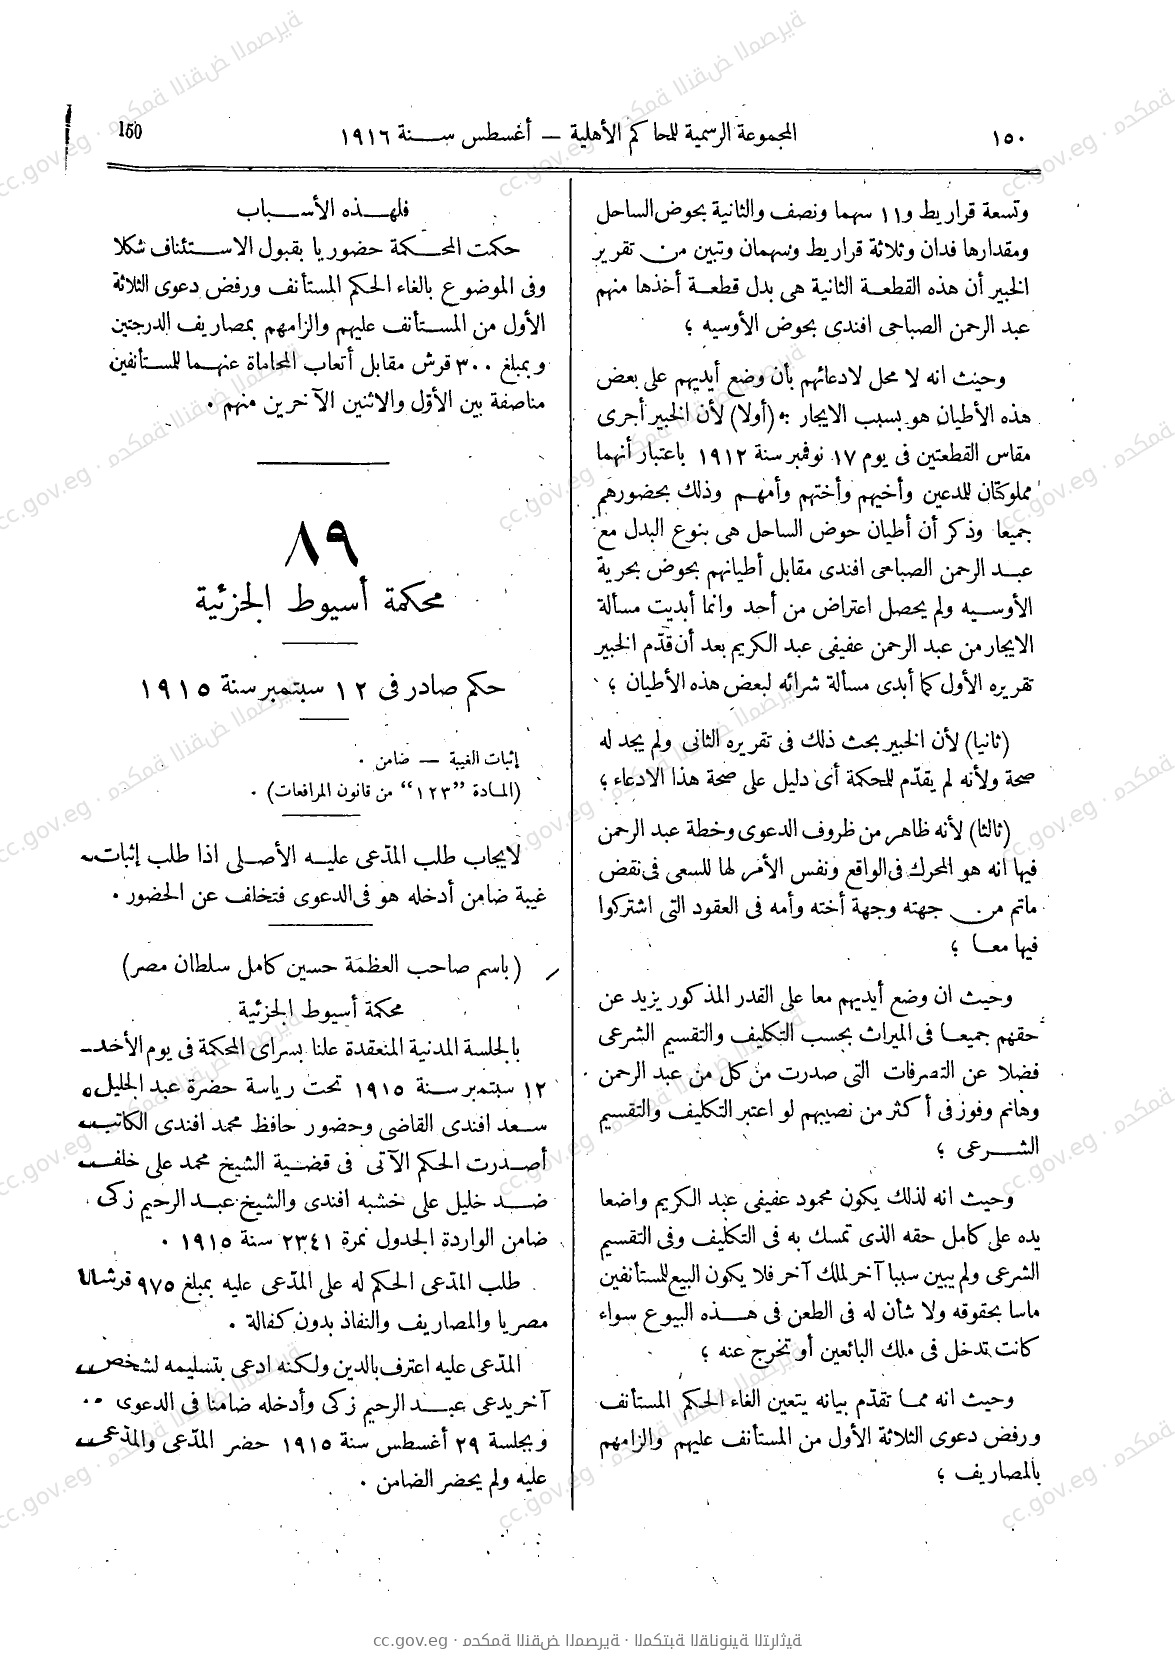 ١٥٠
المجموعة الرسمية للمحاكم الأهلية — أغسطس سنة ١٩١٦
150
وتسعة قراريط و١١ سهما ونصف والثانية بحوض الساحل
ومقدارها فدان وثلاثة قراريط وسهمان وتبين من تقرير
الخبير أن هذه القطعة الثانية هى بدل قطعة أخذها منهم
عبد الرحمن الصباحى افندى بحوض الأوسيه ؛
وحيث انه لا محل لادعائهم بأن وضع أيديهم على بعض
هذه الأطيان هو بسبب الايجار (أولا) لأن الخبير أجرى
مقاس القطعتين فى يوم ١٧ نوفمبر سنة ١٩١٢ باعتبار أنهما
مملوكتان للمدعين وأخيهم وأختهم وأمهم وذلك بحضورهم
جميعا وذكر أن أطيان حوض الساحل هى بنوع البدل مع
عبد الرحمن الصباحى افندى مقابل أطيانهم بحوض بحرية
الأوسيه ولم يحصل اعتراض من أحد وانما أبديت مسألة
الايجار من عبد الرحمن عفيفى عبد الكريم بعد أن قدّم الخبير
تقريره الأول كما أبدى مسألة شرائه لبعض هذه الأطيان ؛
(ثانيا) لأن الخبير بحث ذلك فى تقريره الثانى ولم يجد له
صحة ولأنه لم يقدّم للمحكمة أى دليل على صحة هذا الادعاء ؛
(ثالثا) لأنه ظاهر من ظروف الدعوى وخطة عبد الرحمن
فيها انه هو المحرك فى الواقع ونفس الأمر لها للسعى فى نقض
ماتم من جهته وجهة أخته وأمه فى العقود التى اشتركوا
فيها معا ؛
وحيث ان وضع أيديهم معا على القدر المذكور يزيد عن
حقهم جميعا فى الميراث بحسب التكليف والتقسيم الشرعى
فضلا عن التصرفات التى صدرت من كل من عبد الرحمن
وهانم وفوز فى أكثر من نصيبهم لو اعتبر التكليف والتقسيم
الشرعى ؛
وحيث انه لذلك يكون محمود عفيفى عبد الكريم واضعا
يده على كامل حقه الذى تمسك به فى التكليف وفى التقسيم
الشرعى ولم يبين سببا آخر لملك آخر فلا يكون البيع للمستأنفين
ماسا بحقوقه ولا شأن له فى الطعن فى هذه البيوع سواء
كانت تدخل فى ملك البائعين أو تخرج عنه ؛
وحيث انه مما تقدّم بيانه يتعين الغاء الحكم المستأنف
ورفض دعوى الثلاثة الأول من المستأنف عليهم والزامهم
بالمصاريف ؛
فلهذه الأسباب
حكمت المحكمة حضوريا بقبول الاستئناف شكلا
وفى الموضوع بالغاء الحكم المستأنف ورفض دعوى الثلاثة
الأول من المستأنف عليهم والزامهم بمصاريف الدرجتين
وبمبلغ ٣٠٠ قرش مقابل أتعاب المحاماة عنهما للمستأنفين
مناصفة بين الأوّل والاثنين الآخرين منهم .
٨٩
محكمة أسيوط الجزئية
حكم صادر فى ١٢ سبتمبر سنة ١٩١٥
إثبات الغيبة — ضامن .
(المادة "١٢٣" من قانون المرافعات) .
لايجاب طلب المدّعى عليه الأصلى اذا طلب إثبات
غيبة ضامن أدخله هو فى الدعوى فتخلف عن الحضور .
(باسم صاحب العظمة حسين كامل سلطان مصر)
محكمة أسيوط الجزئية
بالجلسة المدنية المنعقدة علنا بسراى المحكمة فى يوم الأحد
١٢ سبتمبر سنة ١٩١٥ تحت رياسة حضرة عبد الجليل
سعد افندى القاضى وحضور حافظ محمد افندى الكاتب
أصدرت الحكم الآتى فى قضية الشيخ محمد على خلف
ضد خليل على خشبه افندى والشيخ عبد الرحيم زكى
ضامن الواردة الجدول نمرة ٢٣٤١ سنة ١٩١٥ .
طلب المدّعى الحكم له على المدّعى عليه بمبلغ ٩٧٥ قرشا
مصريا والمصاريف والنفاذ بدون كفالة .
المدّعى عليه اعترف بالدين ولكنه ادعى بتسليمه لشخص
آخر يدعى عبد الرحيم زكى وأدخله ضامنا فى الدعوى ..
وبجلسة ٢٩ أغسطس سنة ١٩١٥ حضر المدّعى والمدّعى
عليه ولم يحضر الضامن .
cc.gov.eg · محكمة النقض المصرية · المكتبة القانونية التراثية